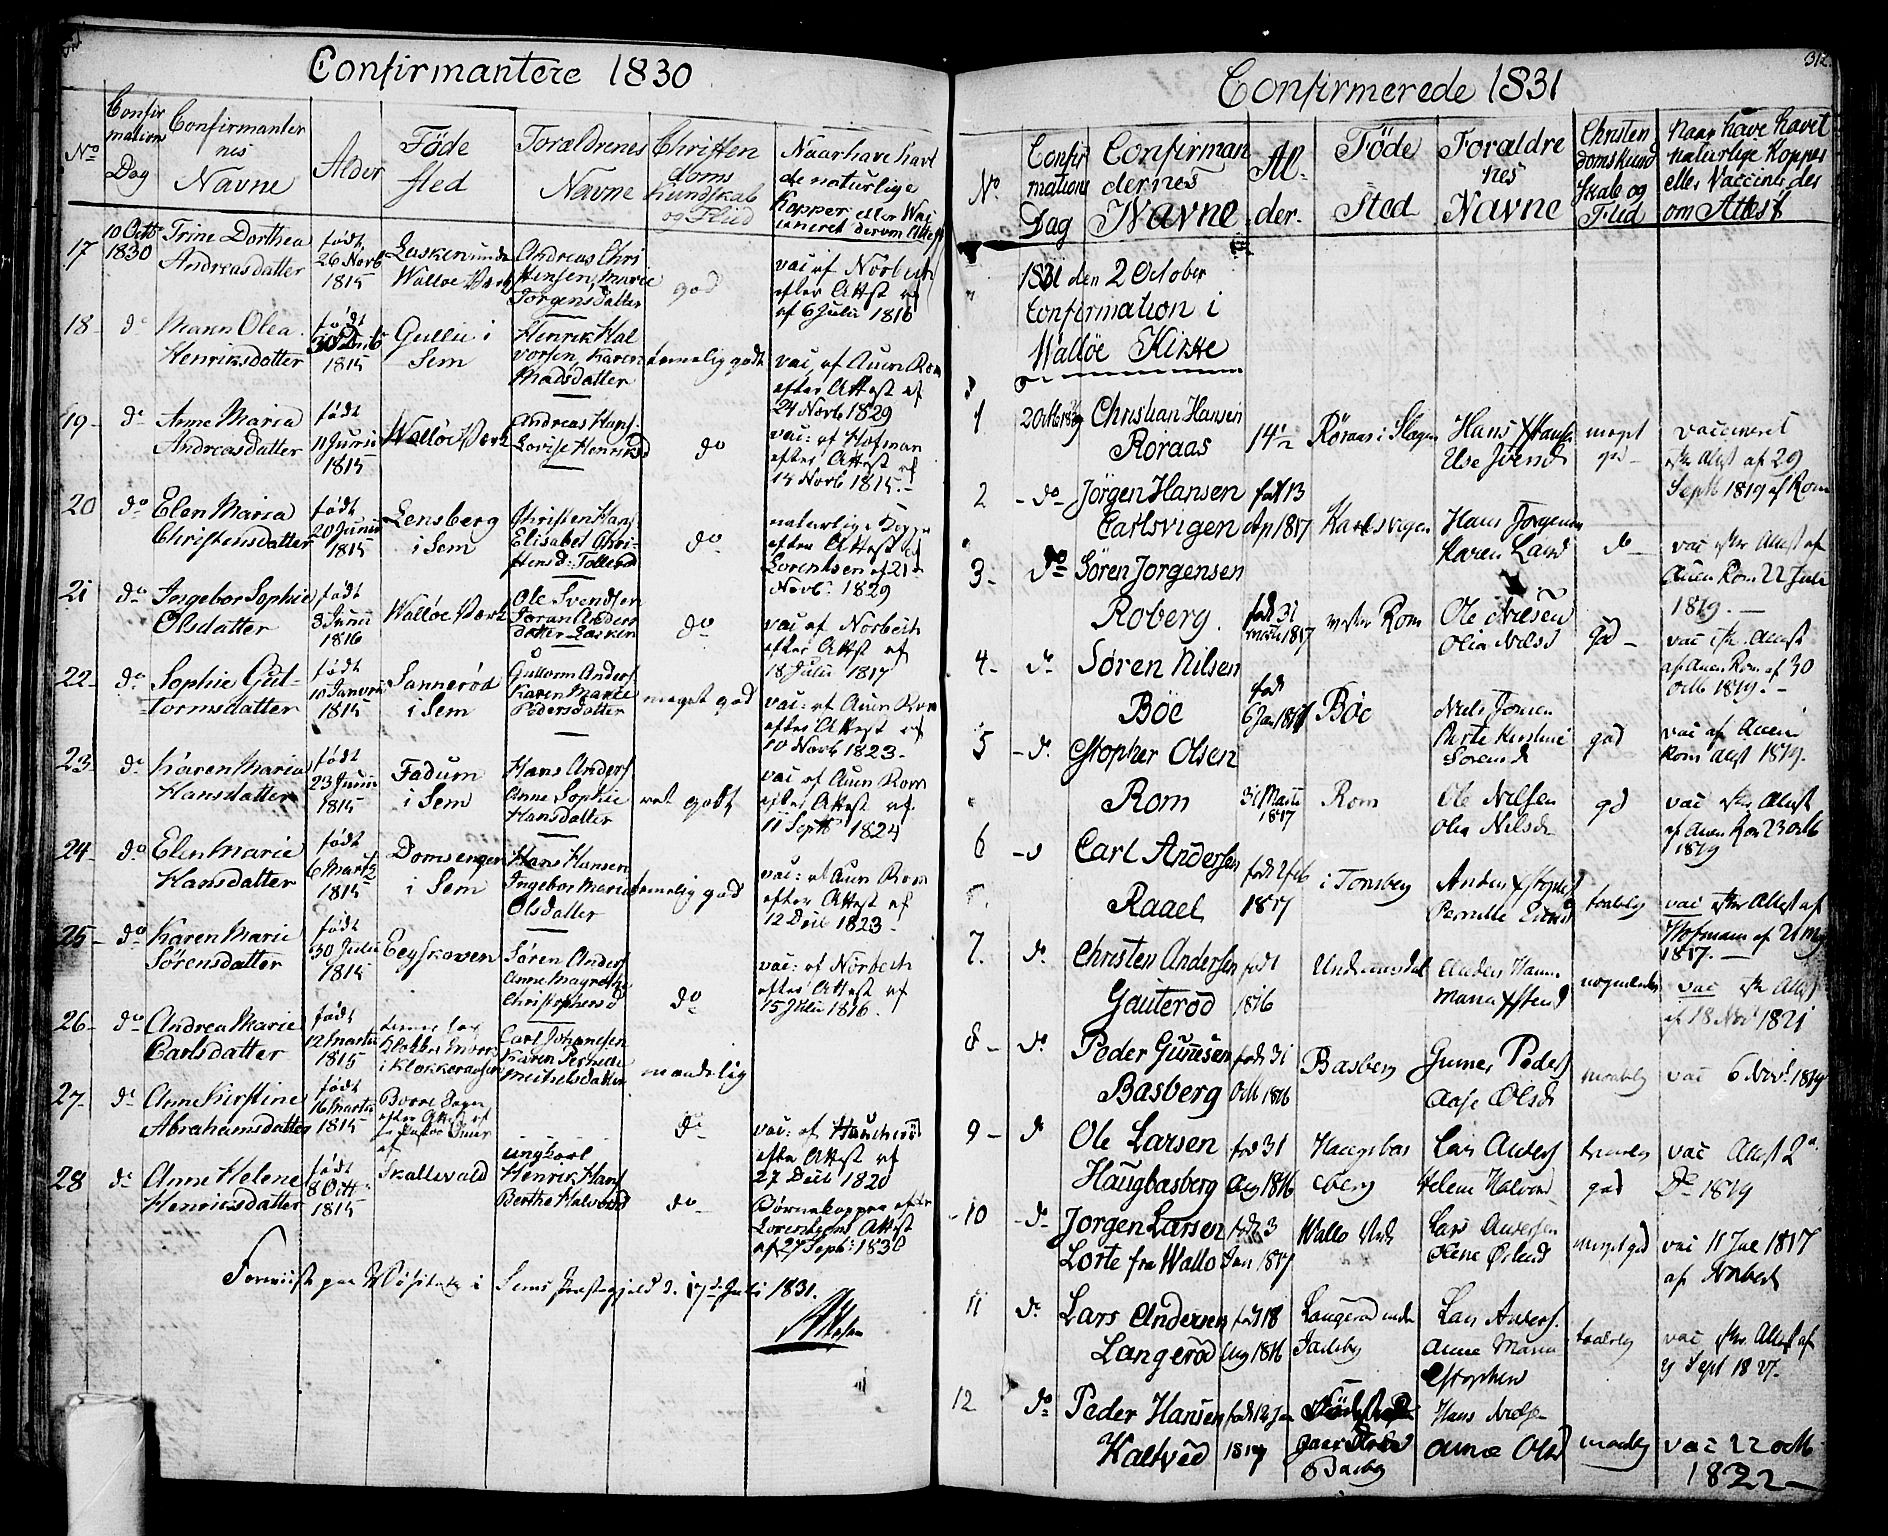 Confirmantere 1830
No
Confir
mations
Dag
Confirmanter
nes
Navne
Alder
Föde
sted
Forældrenes
Navne
Christen
doms
Kundskab
og Flied
Naar have havt
de naturlige
Kopper eller Vac
cineret derom Attest
17
10 Octb
1830
Trine Dorthea
Andreasdatter
födt
26 Novb
1815
Walloe Værk
Andreas Chri
stensen, Marie
Jorgensdatter
god
vac af Norbech
efter Attest af
af 6 Julii 1816
18
do
Maren Olea
Henriksdatter
födt
1815
Gullie i
Sem
Henrik Hal
vorsen, Karen
Madsdatter
temelig godt
vac, af Auen Rom
efter Attest af
24 Novb 1829
19
do
Anne Maria
Andreasdatter
födt
11 Junii
1815
Walløe Værk
Andreas Hans
Lovise Henriksd
do
vac: af Hofman
efter Attest af
15 Novb 1815.
20
do
Elen Maria
Christensdatter
födt
20 Junii
1815
Lensberg
i Sem
Christen Hans
Elisabet Chri-
stensd: Tollerød
do
naturlige Koppe
efter Attest af
Lorentsen af 21
Novb: 1829
21
do
Ingebor Sophie
Olsdatter
födt
3 Junii
1816
Walløe Værk
Ole Svendsen
Joran Anders
datter
do
vac af Norbech
efter Attest af
18 Julii 1817
22
do
Sophie Gut-
tormsdatter
födt
10 Janvri
1815
Sannerød
i Sem
Gullorm Anders
Karen Marie
Pedersdatter
meget god
vac: af Auen Rom
efter Attest af
10 Novb 1823
23
do
Karen Maria
Hansdatter
födt
23 Junii
1815
Fadum
i Sem
Hans Anders
Anne Sophie
Hansdatter
ret godt
vac af Auen Rom
efter Attest af
11 Septb 1824
24
do
Elen Marie
Hansdatter
födt
6 Marts
1815
Domsengen
i Sem
Hans Hansen
Ingebor Maria
Olsdatter
temelig god
vac: af Auen Rom
efter Attest af
12 Deci 1823
25
do
Karen Marie
Sørensdatter
födt
30 Julii
1815
Eegskoven
Søren Anders
Anne Magrethe
Christophersd
do
vac: af Norbech
efter Attest af
15 Julii 1816.
26
do
Andrea Marie
Carlsdatter
födt
12 Martii
1815
Carl Johannesen
Karen Pernille
Mickelsdatter
maadelig
27
do
Anne Kirstine
Abrahamsdatter
födt
16 Martii
1815
do
vac: af
efter Attest af
27 Deci 1820
28
do
Anne Helene
Henriksdatter
födt
8 Octb
1815
Skallevald
Henrik Hans
Berthe Halvorsd
do
Børnekopper efter
Lorentsens Attest
af 27 Septb: 1830
Foreviist paa Visitats i Sems Præstegjeld d. 17de Juli 1831.
312
Confirmerede 1831
No
Confir
mations
Dag
Confirman
dernes
Navne
Al-
der.
Föde
Sted
Foraldre
nes
Navne
Christen
doms Kund
skab og
Flid
Naar have havet
naturlige Kopper
eller Vaccineredes
om Attest
1831 den 2 October
Confirmation i
Walløe Kirke
1
Christian Hansen
Røraas
14 1/2
Røraas i Slagen
Hans
meget
god
vaccineret
efter Attest af 29
Septb 1819 af Rom
2
do
Jörgen Hansen
Carlsvigen
født 13
Apr 1817
Karlsvigen
Hans Jorgensen
Karen
do
vac efter Attest af
Auen Rom 22 Juli
1819.
3
do
Sören Jorgensen
Roberg.
født 31
1817
Rom
Ole Nielsen
Olia Nielsd
god
vac efter Attest
af Auen Rom af 30
Octb 1819.
4
do
Søren Nilsen
Böe
født
6 Jan 1817
Böe
Niels Jonsen
Berte Kirstine
Sorensd
god
vac af Auen
Rom Attest 1819.
5
do
Cstopher Olsen
Rom
31 Marti
1817
Rom
Ole Nilsen
Olia Nilsdr
gd
vac efter Attest
af Auen Rom 23 Octb
1819
6
Carl Andersen
Raael
født 2 feb
1817
i Tonsberg
Anders
Pernille
taalelig
vac efter Attest af
Hofmann af 21 May
1817.
7
do
Christen Andersen
Gauterød
født
1816
Anders
Maria
vac efter Attest
af 18 Nov 1821
8
do
Peder Gunesen
Basberg
født 31
Octb 1816
Basberg
Guner Peders
Aase Olsdr
maadelig
vac 6 Novb 1819
9
do
Ole Larsen
Haugbasberg
født 31
Aug 1816
Haugsbas
berg
Lars Anders
Helene Halvord
god
vac Attest
1819
10
do
Jorgen Larsen
Lorte fra Wallo
født 3
Jan 1817
Wallo
Lars Andersen
meget god
vac 11 Jul 1817
af Norbech
11
do
Lars Andersen
Langerød
født 18
Aug 1816
Langerød under
Jarlsberg
Lars Anders
Anne Maria
Cstophersd
taalelig
vac efter Attest af
Sept 1827.
12
do
Peder Hansen
Kaltvéd
født 12 Jan
1817
Hans Niels
Anne Olsd
maadelig
vac 22 Octb
1822